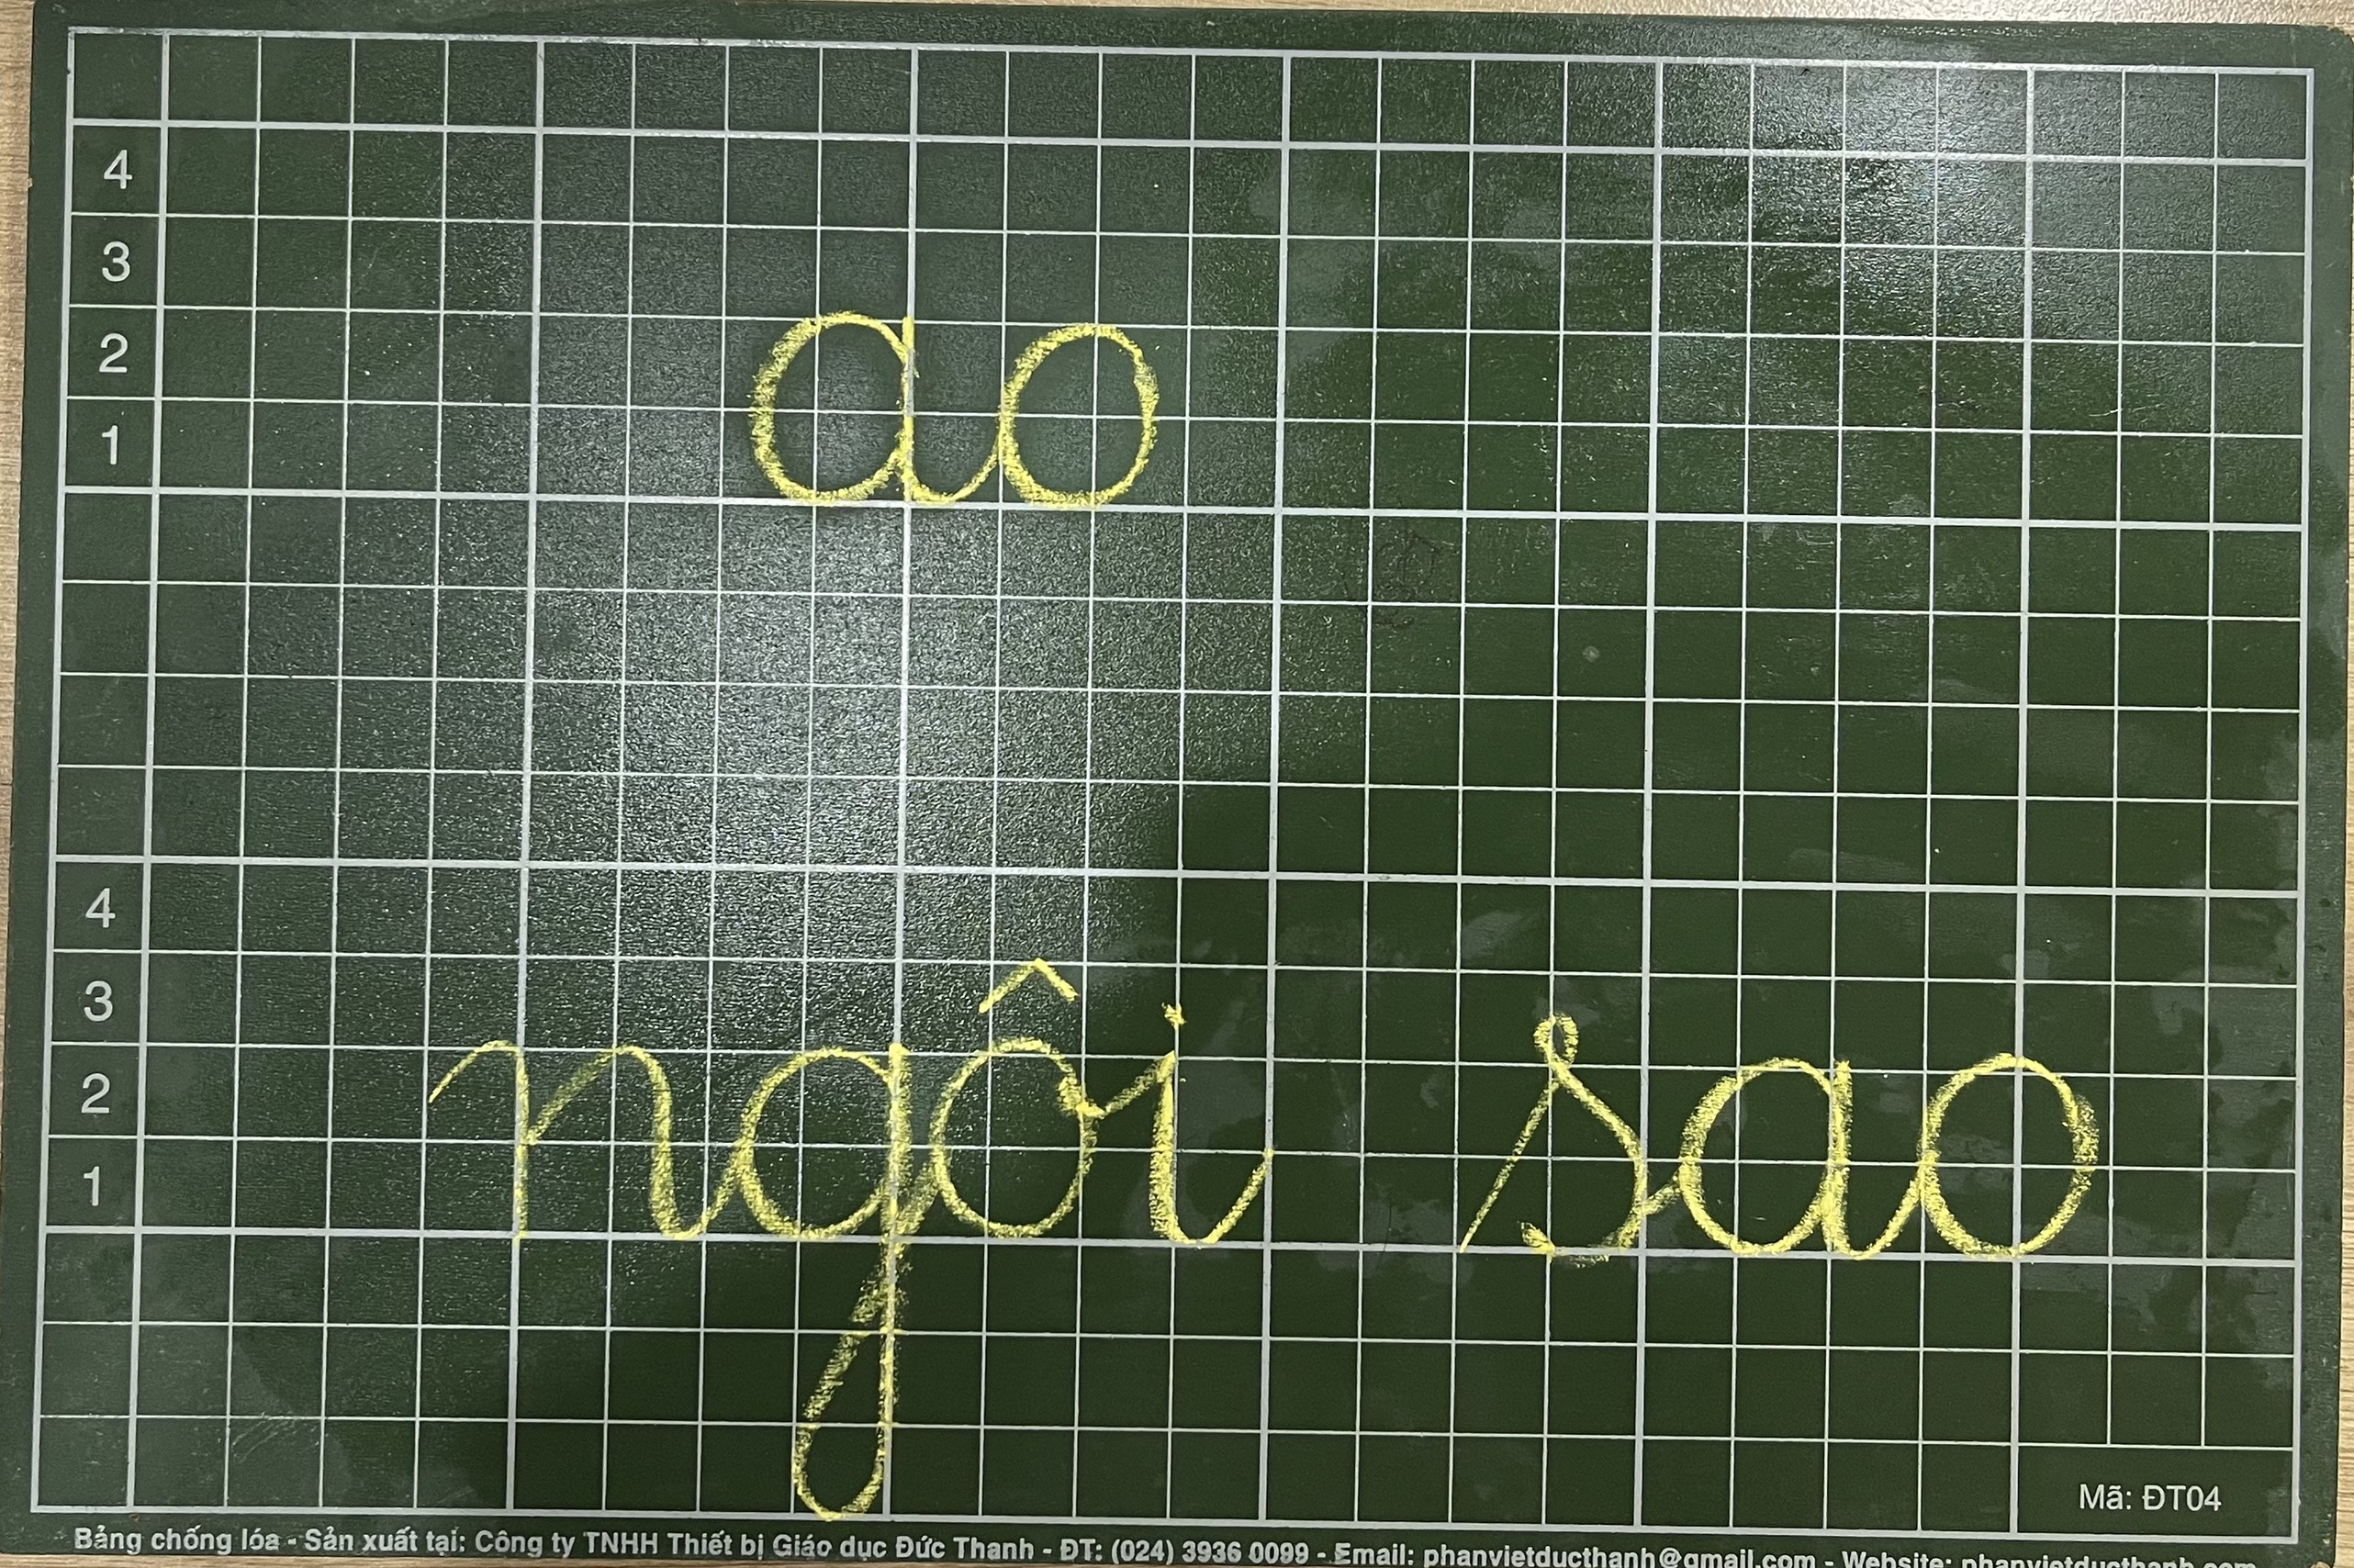 4
3
ao
2
1
4
3
ngôi sao
2
1
Mã: ĐT04
Bảng chống lóa - Sản xuất tại: Công ty TNHH Thiết bị Giáo dục Đức Thanh - ĐT: (024) 3936 0099 - Email: phanvietducthanh@gmail.com - Website: